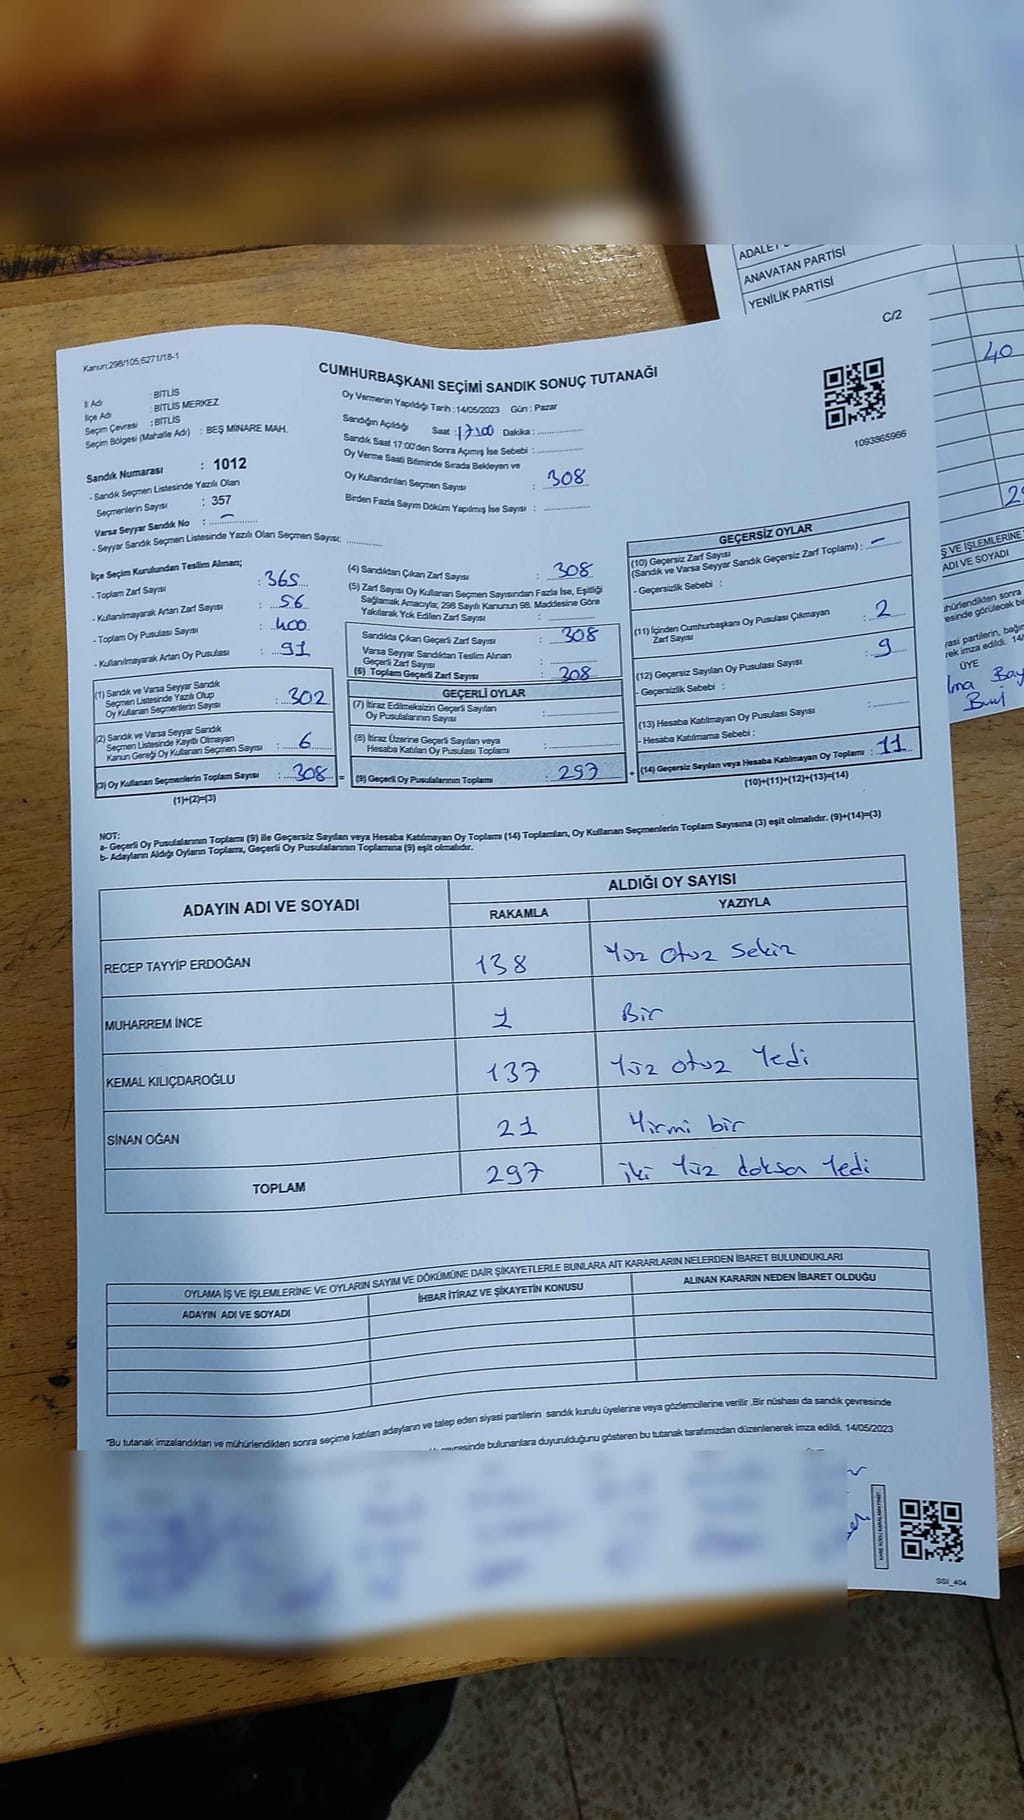 ADALET
ANAVATAN PARTİSİ
YENİLİK PARTİSİ
40
C/2
Kanun:298/105;6271/18-1
CUMHURBAŞKANI SEÇİMİ SANDIK SONUÇ TUTANAĞI
1093865966
İl Adı : BİTLİS
İlçe Adı : BİTLİS MERKEZ
Seçim Çevresi : BİTLİS
Seçim Bölgesi (Mahalle Adı) : BEŞ MİNARE MAH.
Sandık Numarası : 1012
- Sandık Seçmen Listesinde Yazılı Olan
Seçmenlerin Sayısı : 357
Varsa Seyyar Sandık No : -
- Seyyar Sandık Seçmen Listesinde Yazılı Olan Seçmen Sayısı:
Oy Vermenin Yapıldığı Tarih :14/05/2023 Gün : Pazar
Sandığın Açıldığı Saat :17:00 Dakika :
Sandık Saat 17:00'den Sonra Açımış İse Sebebi :
Oy Verme Saati Bitiminde Sırada Bekleyen ve
Oy Kullandırılan Seçmen Sayısı : 308
Birden Fazla Sayım Döküm Yapılmış İse Sayısı :
İlçe Seçim Kurulundan Teslim Alınan;
- Toplam Zarf Sayısı : 365
- Kullanılmayarak Artan Zarf Sayısı : 56
- Toplam Oy Pusulası Sayısı : 400
- Kullanılmayarak Artan Oy Pusulası : 91
(1) Sandık ve Varsa Seyyar Sandık
Seçmen Listesinde Yazılı Olup
Oy Kullanan Seçmenlerin Sayısı : 302
(2) Sandık ve Varsa Seyyar Sandık
Seçmen Listesinde Kayıtlı Olmayan
Kanun Gereği Oy Kullanan Seçmen Sayısı : 6
(3) Oy Kullanan Seçmenlerin Toplam Sayısı : 308 =
(1)+(2)=(3)
(4) Sandıktan Çıkan Zarf Sayısı : 308
(5) Zarf Sayısı Oy Kullanan Seçmen Sayısından Fazla İse, Eşitliği
Sağlamak Amacıyla; 298 Sayılı Kanunun 98. Maddesine Göre
Yakılarak Yok Edilen Zarf Sayısı :
Sandıkta Çıkan Geçerli Zarf Sayısı : 308
Varsa Seyyar Sandıktan Teslim Alınan
Geçerli Zarf Sayısı :
(6) Toplam Geçerli Zarf Sayısı : 308
GEÇERLİ OYLAR
(7) İtiraz Edilmeksizin Geçerli Sayılan
Oy Pusulalarının Sayısı :
(8) İtiraz Üzerine Geçerli Sayılan veya
Hesaba Katılan Oy Pusulası Toplamı :
(9) Geçerli Oy Pusulalarının Toplamı : 297 +
GEÇERSİZ OYLAR
(10) Geçersiz Zarf Sayısı
(Sandık ve Varsa Seyyar Sandık Geçersiz Zarf Toplamı) : -
- Geçersizlik Sebebi :
(11) İçinden Cumhurbaşkanı Oy Pusulası Çıkmayan
Zarf Sayısı : 2
(12) Geçersiz Sayılan Oy Pusulası Sayısı : 9
- Geçersizlik Sebebi :
(13) Hesaba Katılmayan Oy Pusulası Sayısı :
- Hesaba Katılmama Sebebi :
(14) Geçersiz Sayılan veya Hesaba Katılmayan Oy Toplamı : 11
(10)+(11)+(12)+(13)=(14)
NOT:
a- Geçerli Oy Pusulalarının Toplamı (9) ile Geçersiz Sayılan veya Hesaba Katılmayan Oy Toplamı (14) Toplamları, Oy Kullanan Seçmenlerin Toplam Sayısına (3) eşit olmalıdır. (9)+(14)=(3)
b- Adayların Aldığı Oyların Toplamı, Geçerli Oy Pusulalarının Toplamına (9) eşit olmalıdır.
ADAYIN ADI VE SOYADI
ALDIĞI OY SAYISI
RAKAMLA YAZIYLA
RECEP TAYYİP ERDOĞAN 138 Yüz otuz sekiz
MUHARREM İNCE 1 Bir
KEMAL KILIÇDAROĞLU 137 Yüz otuz Yedi
SİNAN OĞAN 21 Yirmi bir
TOPLAM 297 iki Yüz doksan Yedi
OYLAMA İŞ VE İŞLEMLERİNE VE OYLARIN SAYIM VE DÖKÜMÜNE DAİR ŞİKAYETLERLE BUNLARA AİT KARARLARIN NELERDEN İBARET BULUNDUKLARI
ADAYIN ADI VE SOYADI İHBAR İTİRAZ VE ŞİKAYETİN KONUSU ALINAN KARARIN NEDEN İBARET OLDUĞU
"Bu tutanak imzalandıktan ve mühürlendikten sonra seçime katılan adayların ve talep eden siyasi partilerin sandık kurulu üyelerine veya gözlemcilerine verilir .Bir nüshası da sandık çevresinde
bulunanlara duyurulduğunu gösteren bu tutanak tarafımızdan düzenlenerek imza edildi. 14/05/2023
SSI_404
Ş VE İŞLEMLERİNE
ADI VE SOYADI
ühürlendikten sonra
esinde görülecek bi
yasi partilerin, bağım
rek imza edildi. 14/
ÜYE